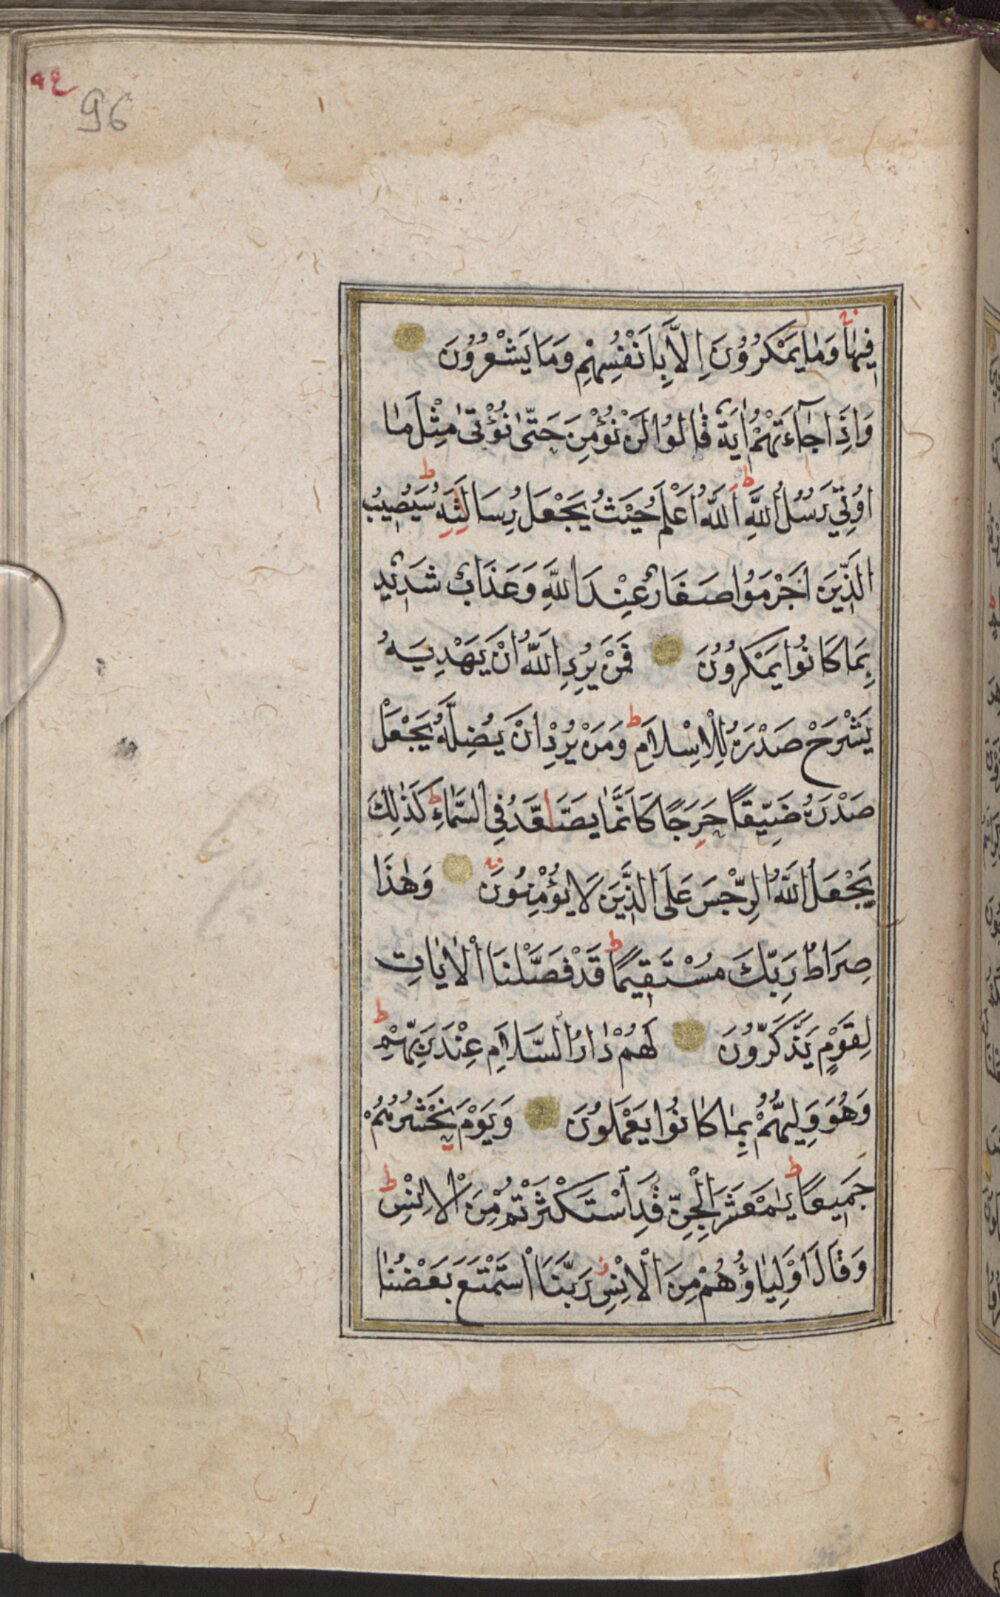 ٩٤
96
فِيهَا وَمَا يَمْكُرُونَ إِلَّا بِاَنْفُسِهِمْ وَمَا يَشْعُرُونَ
وَاِذَا جَآءَتْهُمْ اٰيَةٌ قَالُوا لَنْ نُؤْمِنَ حَتّٰى نُؤْتٰى مِثْلَ مَا
اُوتِيَ رُسُلُ اللّٰهِ ط اَللّٰهُ اَعْلَمُ حَيْثُ يَجْعَلُ رِسَالَتِهِ ط سَيُصِيبُ
الَّذِينَ اَجْرَمُوا صَغَارٌ عِنْدَ اللّٰهِ وَعَذَابٌ شَدِيدٌ
بِمَا كَانُوا يَمْكُرُونَ فَمَنْ يُرِدِ اللّٰهُ اَنْ يَهْدِيَهُ
يَشْرَحْ صَدْرَهُ لِلْاِسْلَامِ ط وَمَنْ يُرِدْ اَنْ يُضِلَّهُ يَجْعَلْ
صَدْرَهُ ضَيِّقًا حَرِجًا كَاَنَّمَا يَصَّاعَّدُ فِي السَّمَاءِ ط كَذٰلِكَ
يَجْعَلُ اللّٰهُ الرِّجْسَ عَلَى الَّذِينَ لَا يُؤْمِنُونَ وَهٰذَا
صِرَاطُ رَبِّكَ مُسْتَقِيمًا ط قَدْ فَصَّلْنَا الْاٰيَاتِ
لِقَوْمٍ يَذَّكَّرُونَ لَهُمْ دَارُ السَّلَامِ عِنْدَ رَبِّهِمْ ط
وَهُوَ وَلِيُّهُمْ بِمَا كَانُوا يَعْمَلُونَ وَيَوْمَ نَحْشُرُهُمْ
جَمِيعًا ط يٰمَعْشَرَ الْجِنِّ قَدِ اسْتَكْثَرْتُمْ مِنَ الْاِنْسِ ط
وَقَالَ اَوْلِيَاؤُهُمْ مِنَ الْاِنْسِ رَبَّنَا اسْتَمْتَعَ بَعْضُنَا